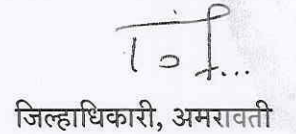 जिल्हाधिकारी, अमरावती